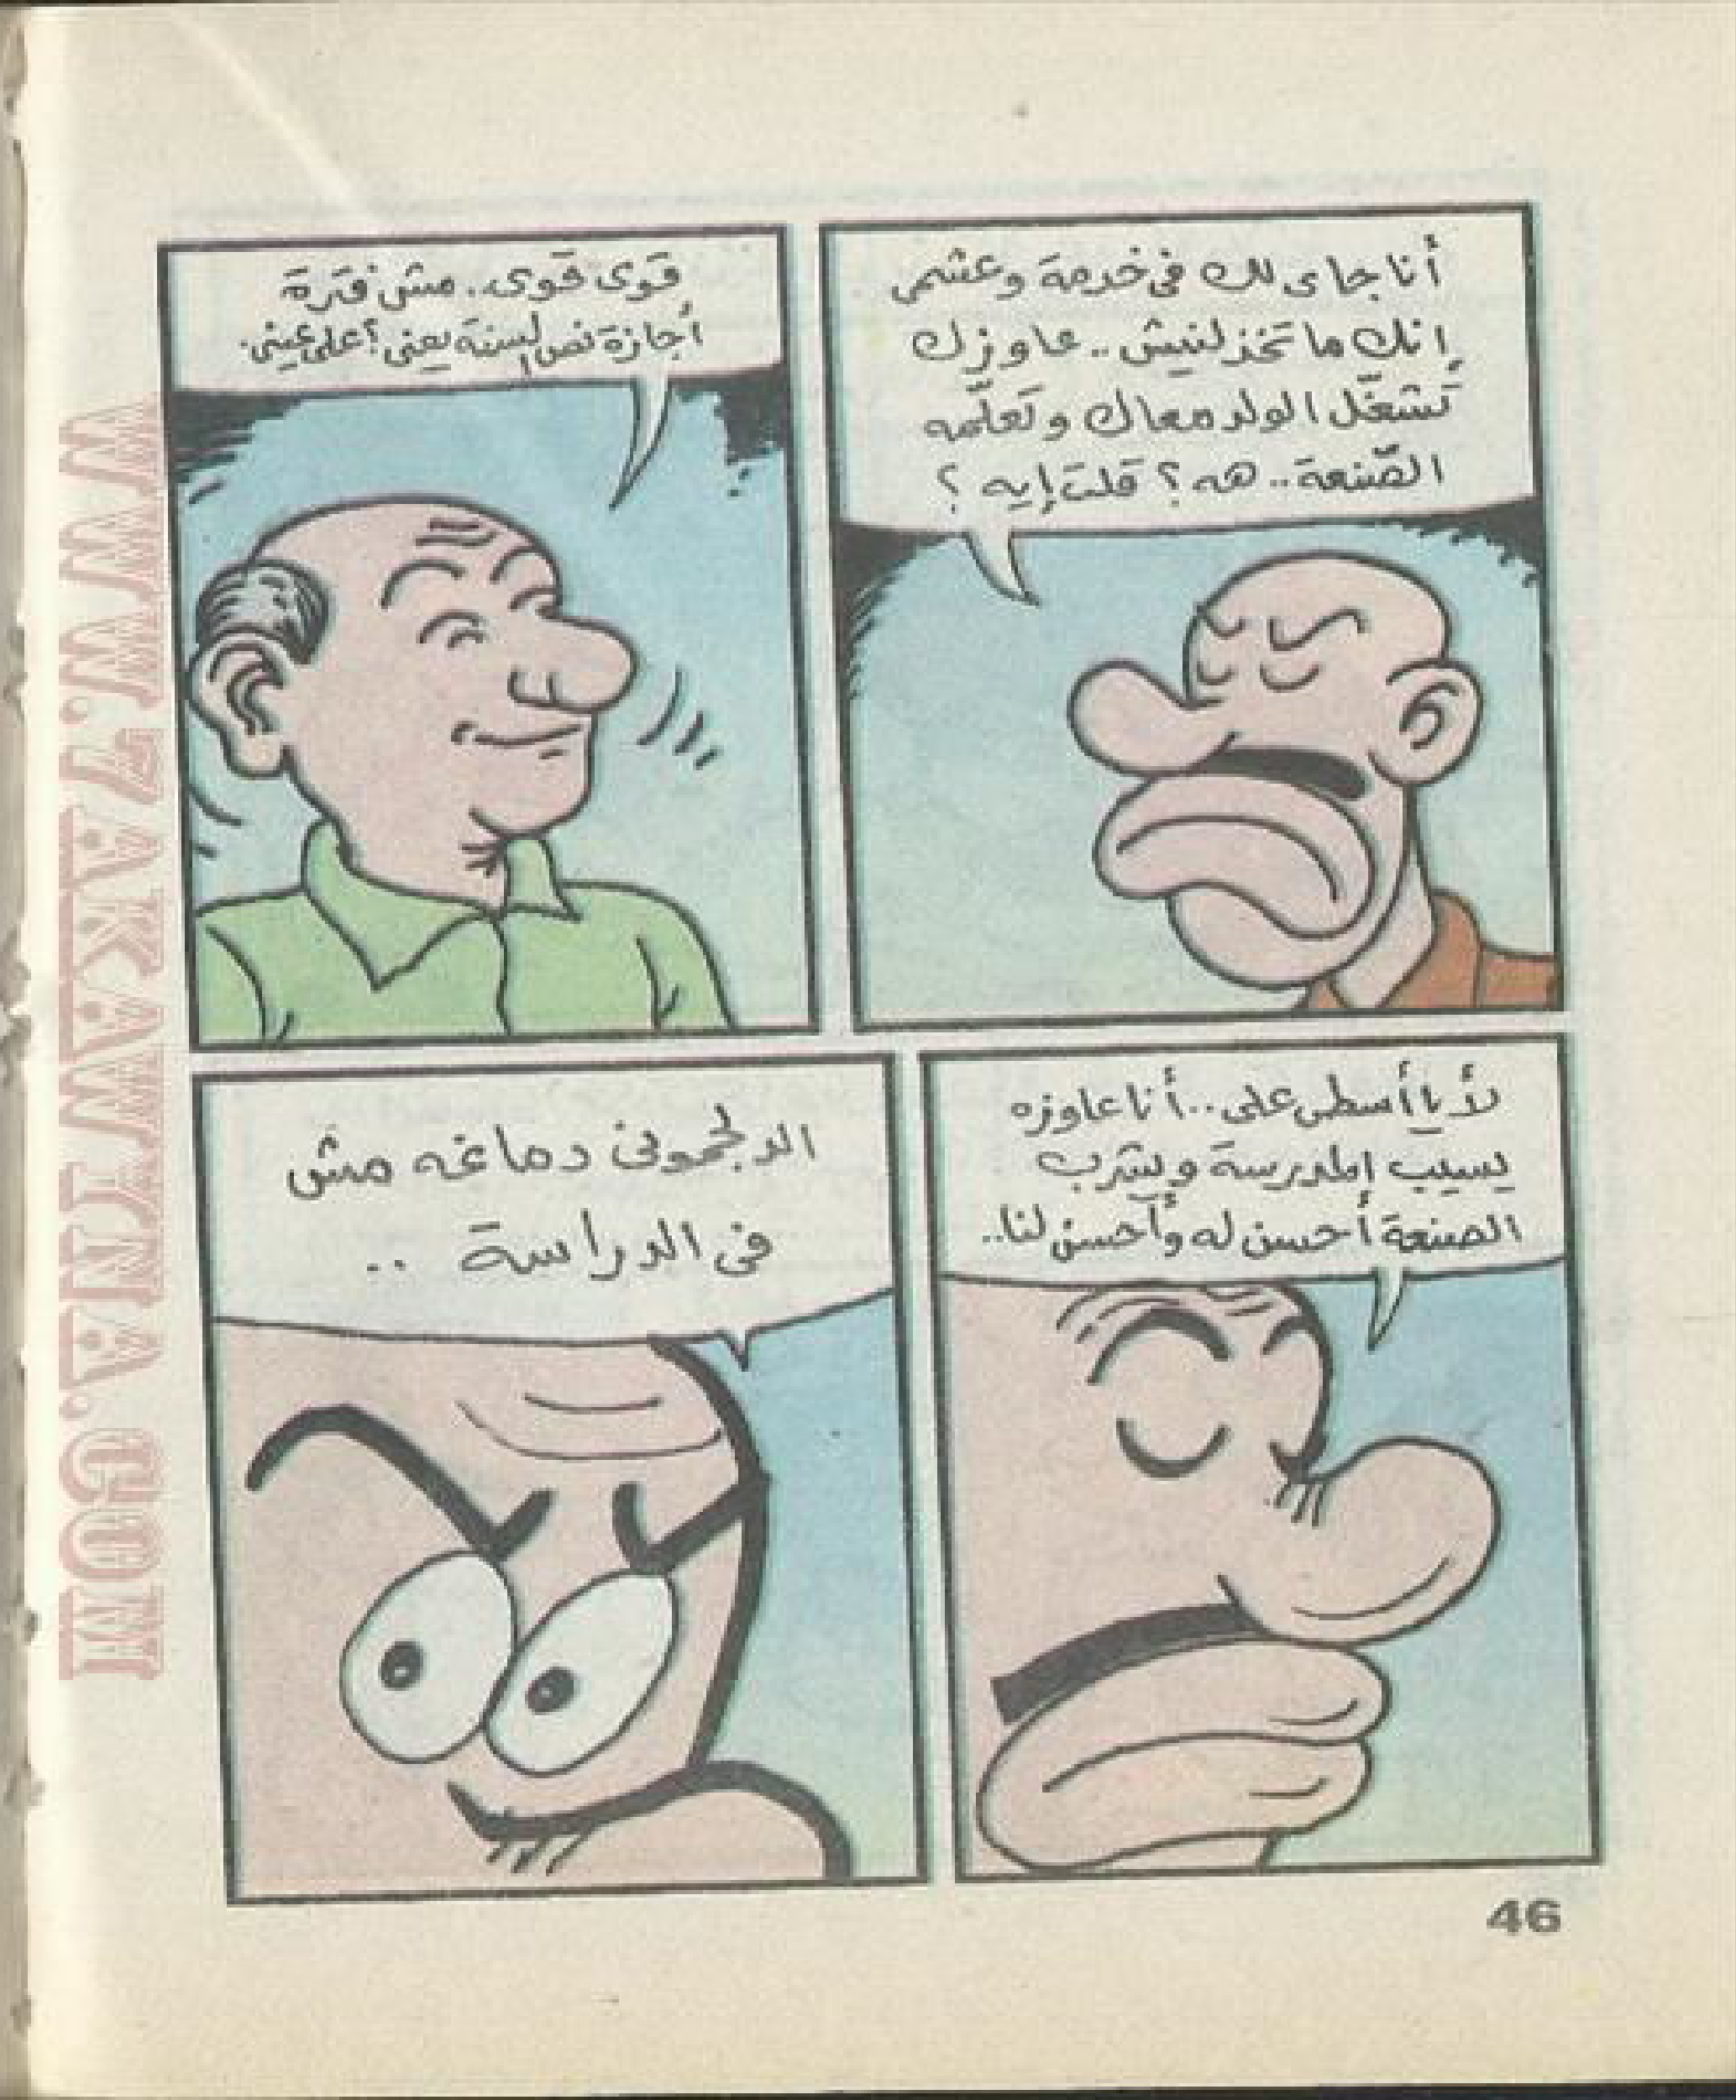 أنا جاى لك فى خدمة وعشمى
إنك ما تخذلنيش .. عاوزك
تشغّل الولد معاك وتعلّمه
الصّنعة .. هه ؟ قلت إيه ؟
قوى قوى .. مش فترة
أجازة نص السنة يعنى ؟ على عينى.
لأ يا أسطى على .. أنا عاوزه
يسيب المدرسة ويشرب
الصنعة أحسن له وأحسن لنا ..
الدلجمونى دماغه مش
فى الدراسة ..
46
WWW.7AKAWITNA.COM